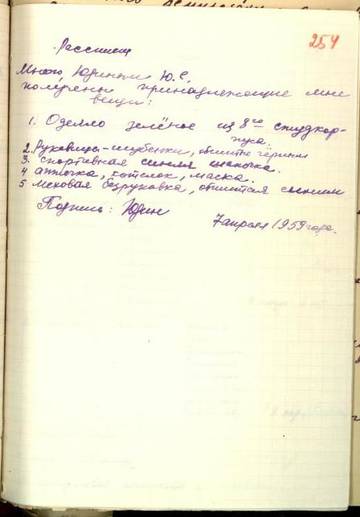 254
Расписка
Мною, Юдиным Ю.Е.
получены принадлежащие мне
вещи:
1. Одеяло зелёное из 8го студкор-
пуса.
2. Рукавицы-шубенки, обшиты чёрным
3 спортивная синяя шапочка.
4 аптечка, котелок, маска.
5 Меховая безрукавка, обшитая синим
Подпись: Юдин
7 апреля 1959 года.